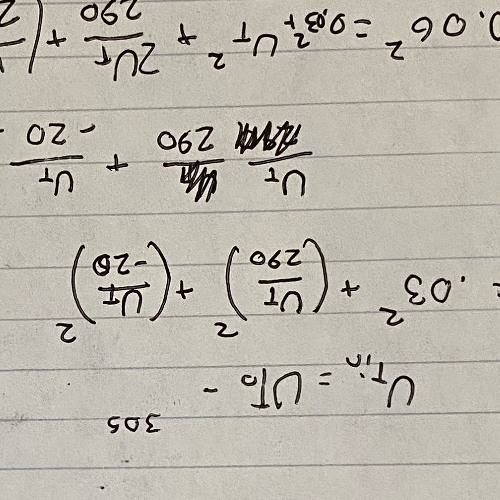 305
U_Tin = UTo -
= .03² + (UT/290)² + (UT/-20)²
UT 290 + UT/-20
0.06² = 0.03² + UT² + 2UT/290 + (